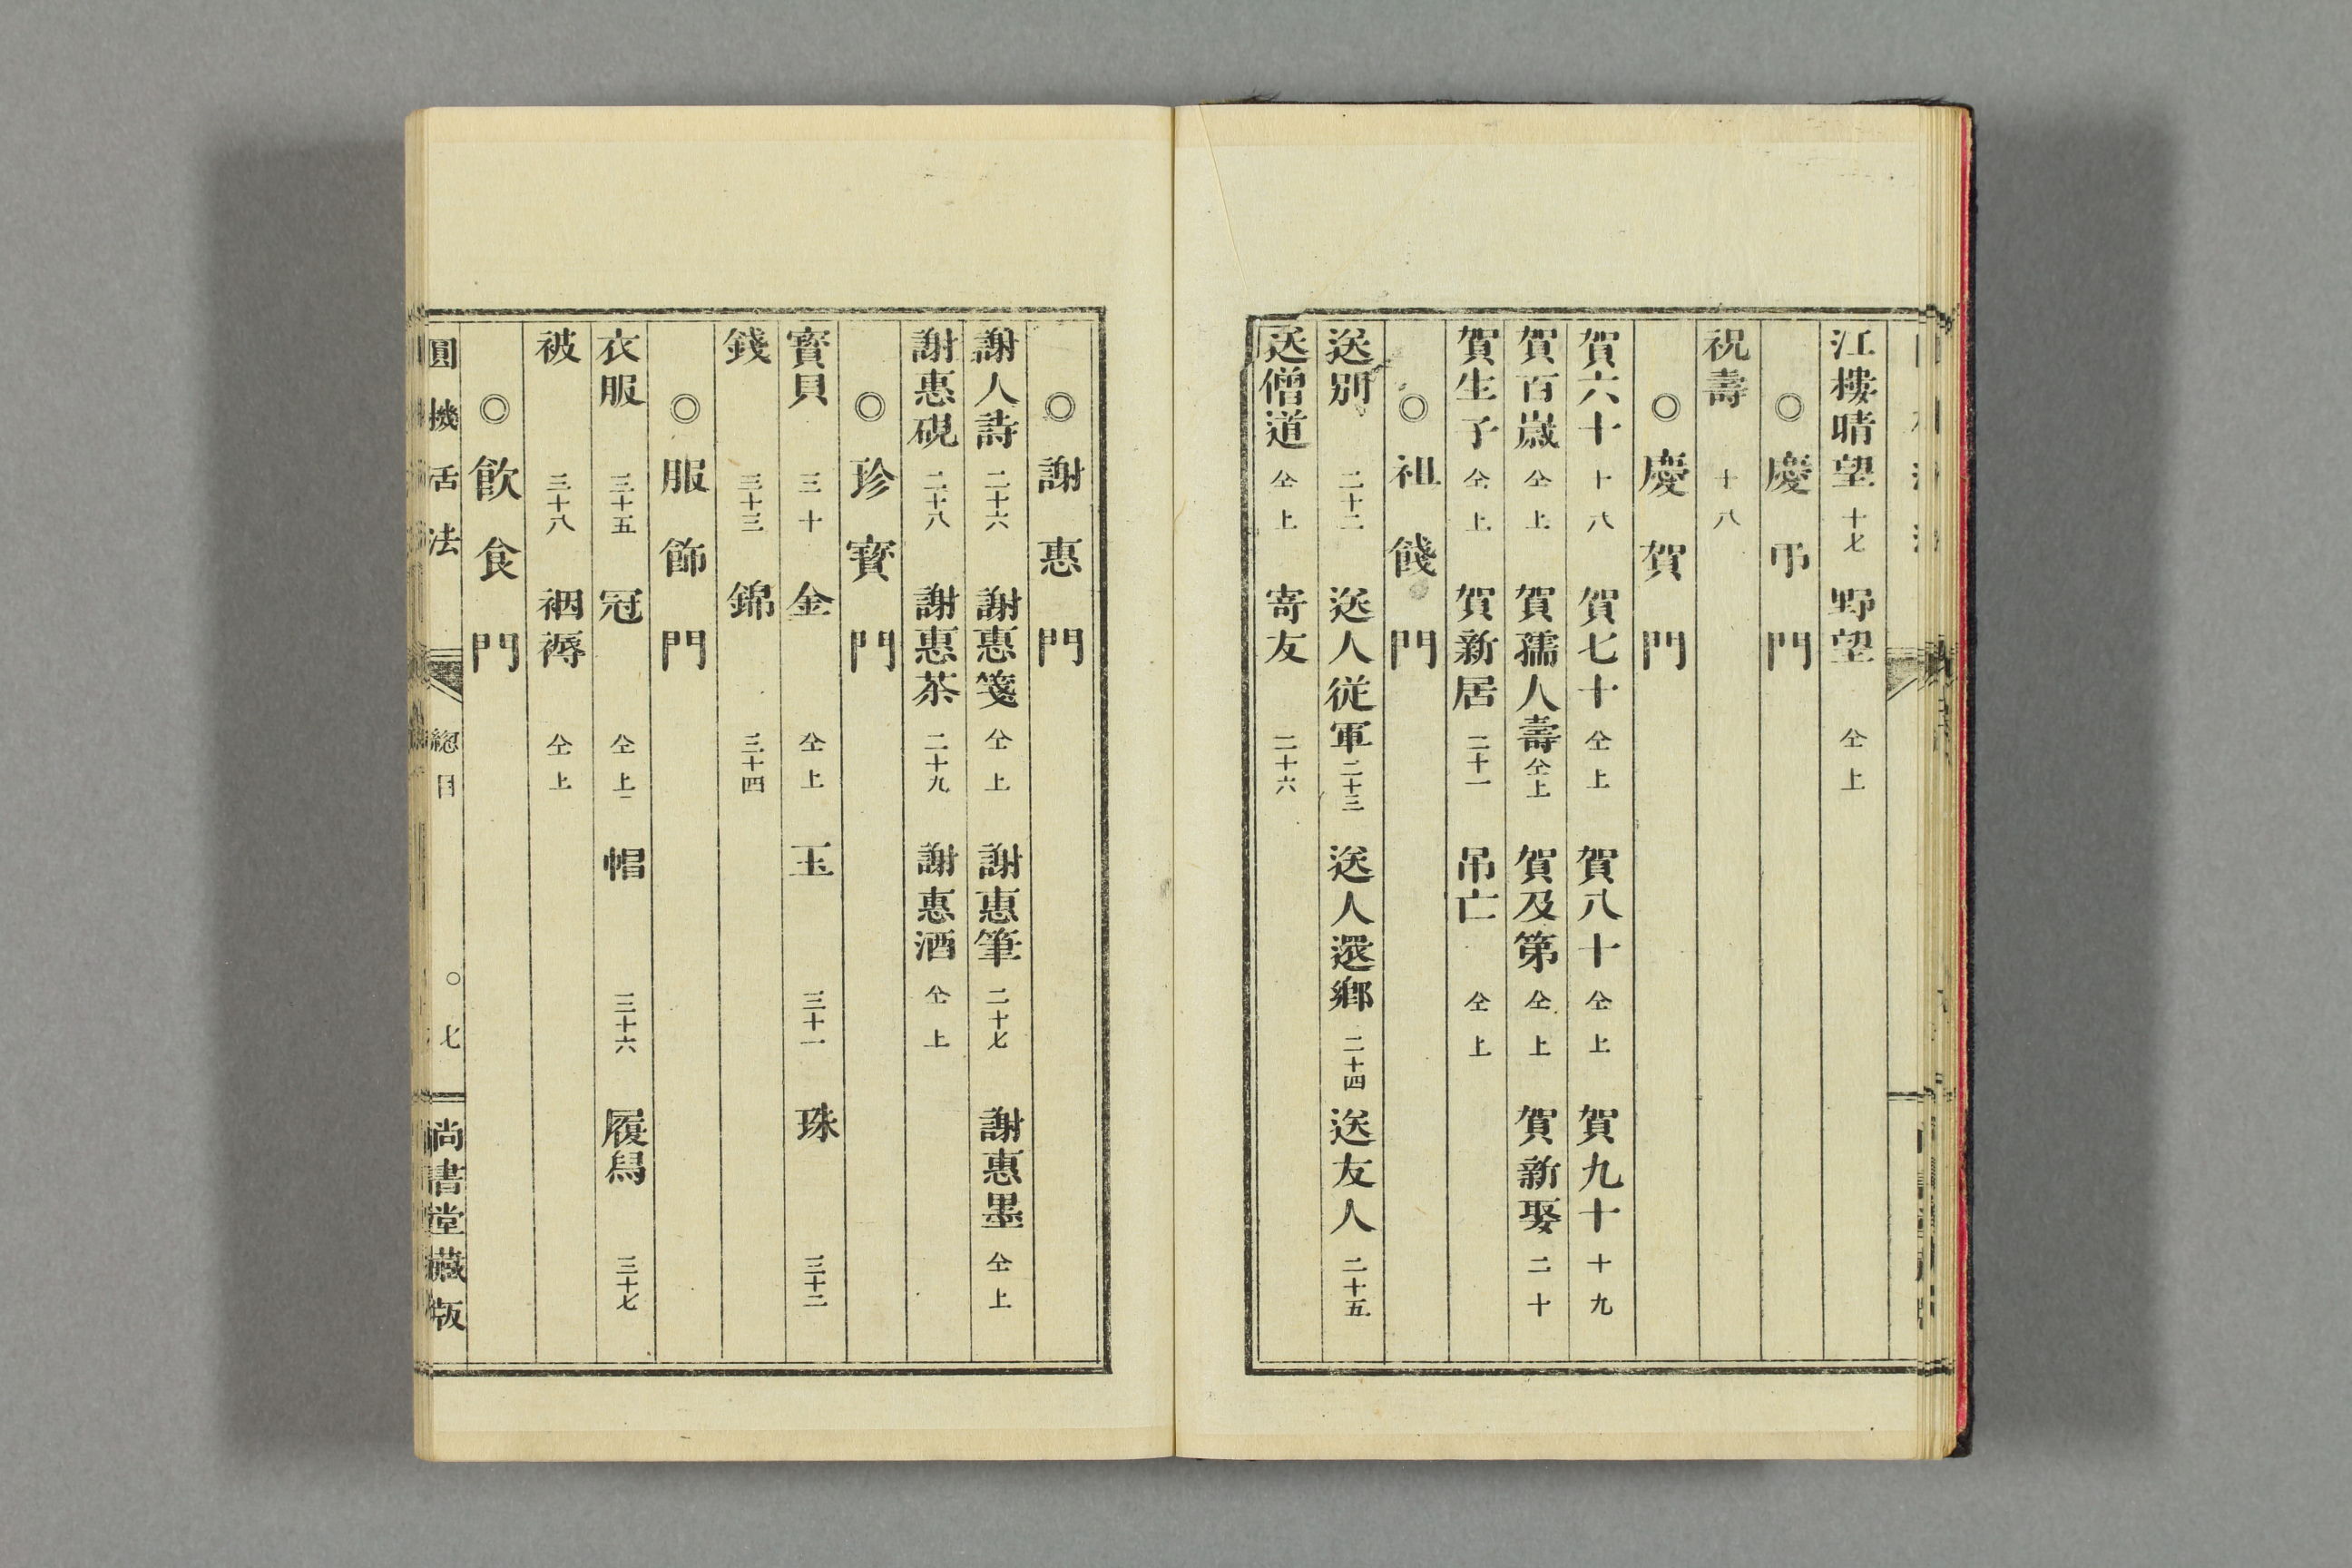 江樓晴望 十七 野望 仝上
◎慶弔門
祝壽 十八
◎慶賀門
賀六十 十八 賀七十 仝上 賀八十 仝上 賀九十 十九
賀百歲 仝上 賀孺人壽 仝上 賀及第 仝上 賀新娶 二十
賀生子 仝上 賀新居 二十一 吊亡 仝上
◎祖餞門
送別 二十二 送人従軍 二十三 送人還鄉 二十四 送友人 二十五
送僧道 仝上 寄友 二十六
◎謝惠門
謝人詩 二十六 謝惠箋 仝上 謝惠筆 二十七 謝惠墨 仝上
謝惠硯 二十八 謝惠茶 二十九 謝惠酒 仝上
◎珍寶門
寶貝 三十 金 仝上 玉 三十一 珠 三十二
錢 三十三 錦 三十四
◎服飾門
衣服 三十五 冠 仝上 帽 三十六 履舃 三十七
被 三十八 裀褥 仝上
◎飲食門
圓機活法 總目 ○七 尚書堂藏版